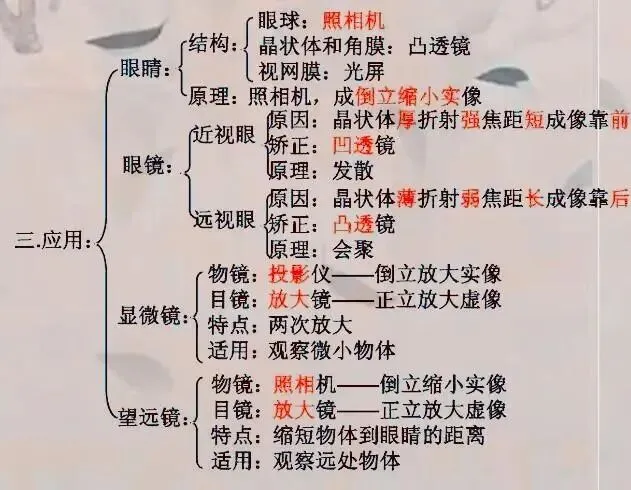 三.应用：
眼睛：
结构：
眼球：照相机
晶状体和角膜：凸透镜
视网膜：光屏
原理：照相机，成倒立缩小实像
眼镜：
近视眼
原因：晶状体厚折射强焦距短成像靠前
矫正：凹透镜
原理：发散
远视眼
原因：晶状体薄折射弱焦距长成像靠后
矫正：凸透镜
原理：会聚
显微镜：
物镜：投影仪——倒立放大实像
目镜：放大镜——正立放大虚像
特点：两次放大
适用：观察微小物体
望远镜：
物镜：照相机——倒立缩小实像
目镜：放大镜——正立放大虚像
特点：缩短物体到眼睛的距离
适用：观察远处物体